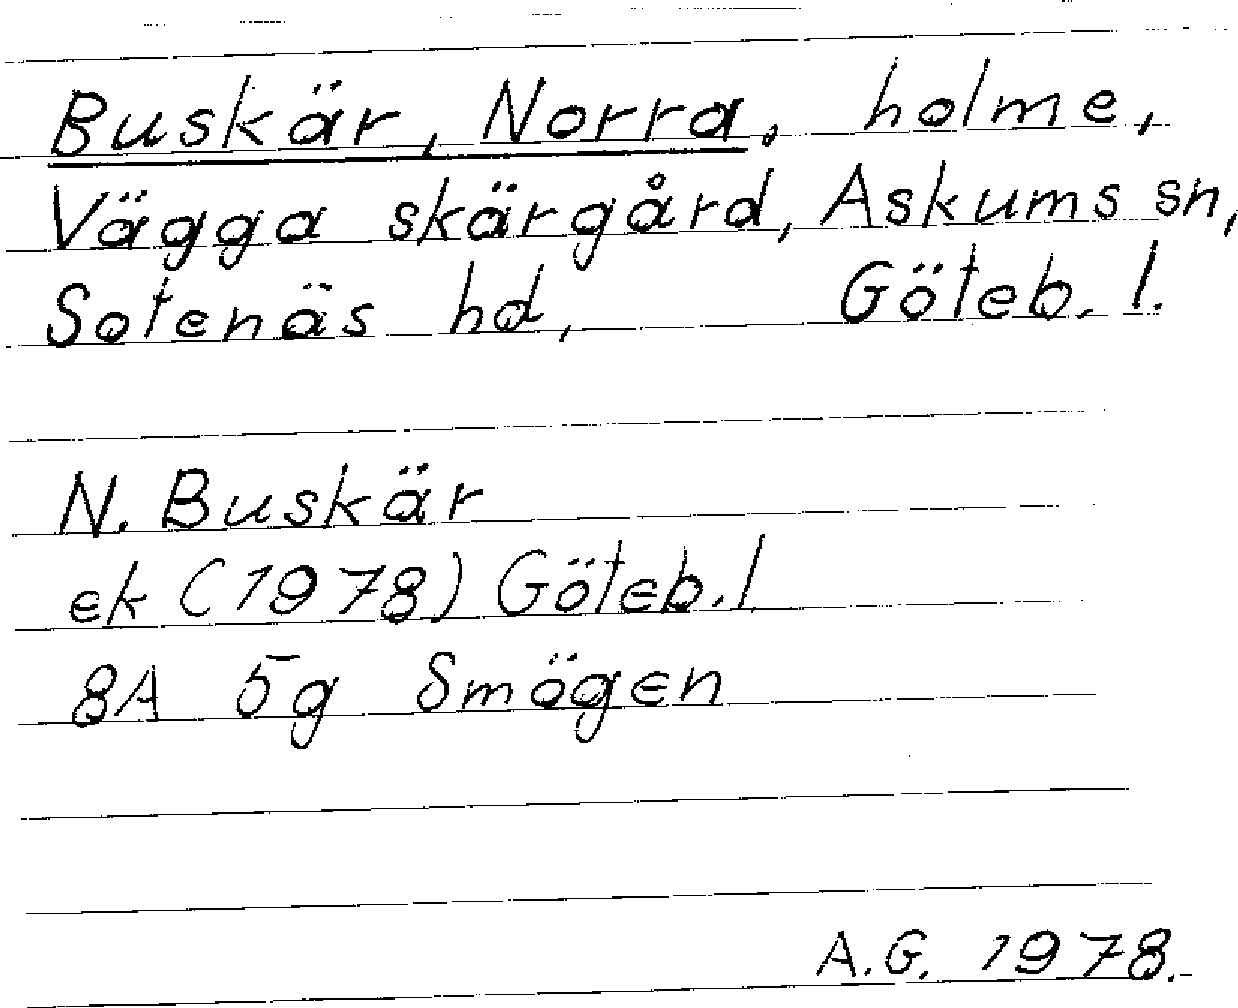 Buskär, Norra, holme,
Vägga skärgård, Askums sn,
Sotenäs hd, Göteb. l.
N. Buskär
ek (1978) Göteb. l
8A 5g Smögen
A.G. 1978.